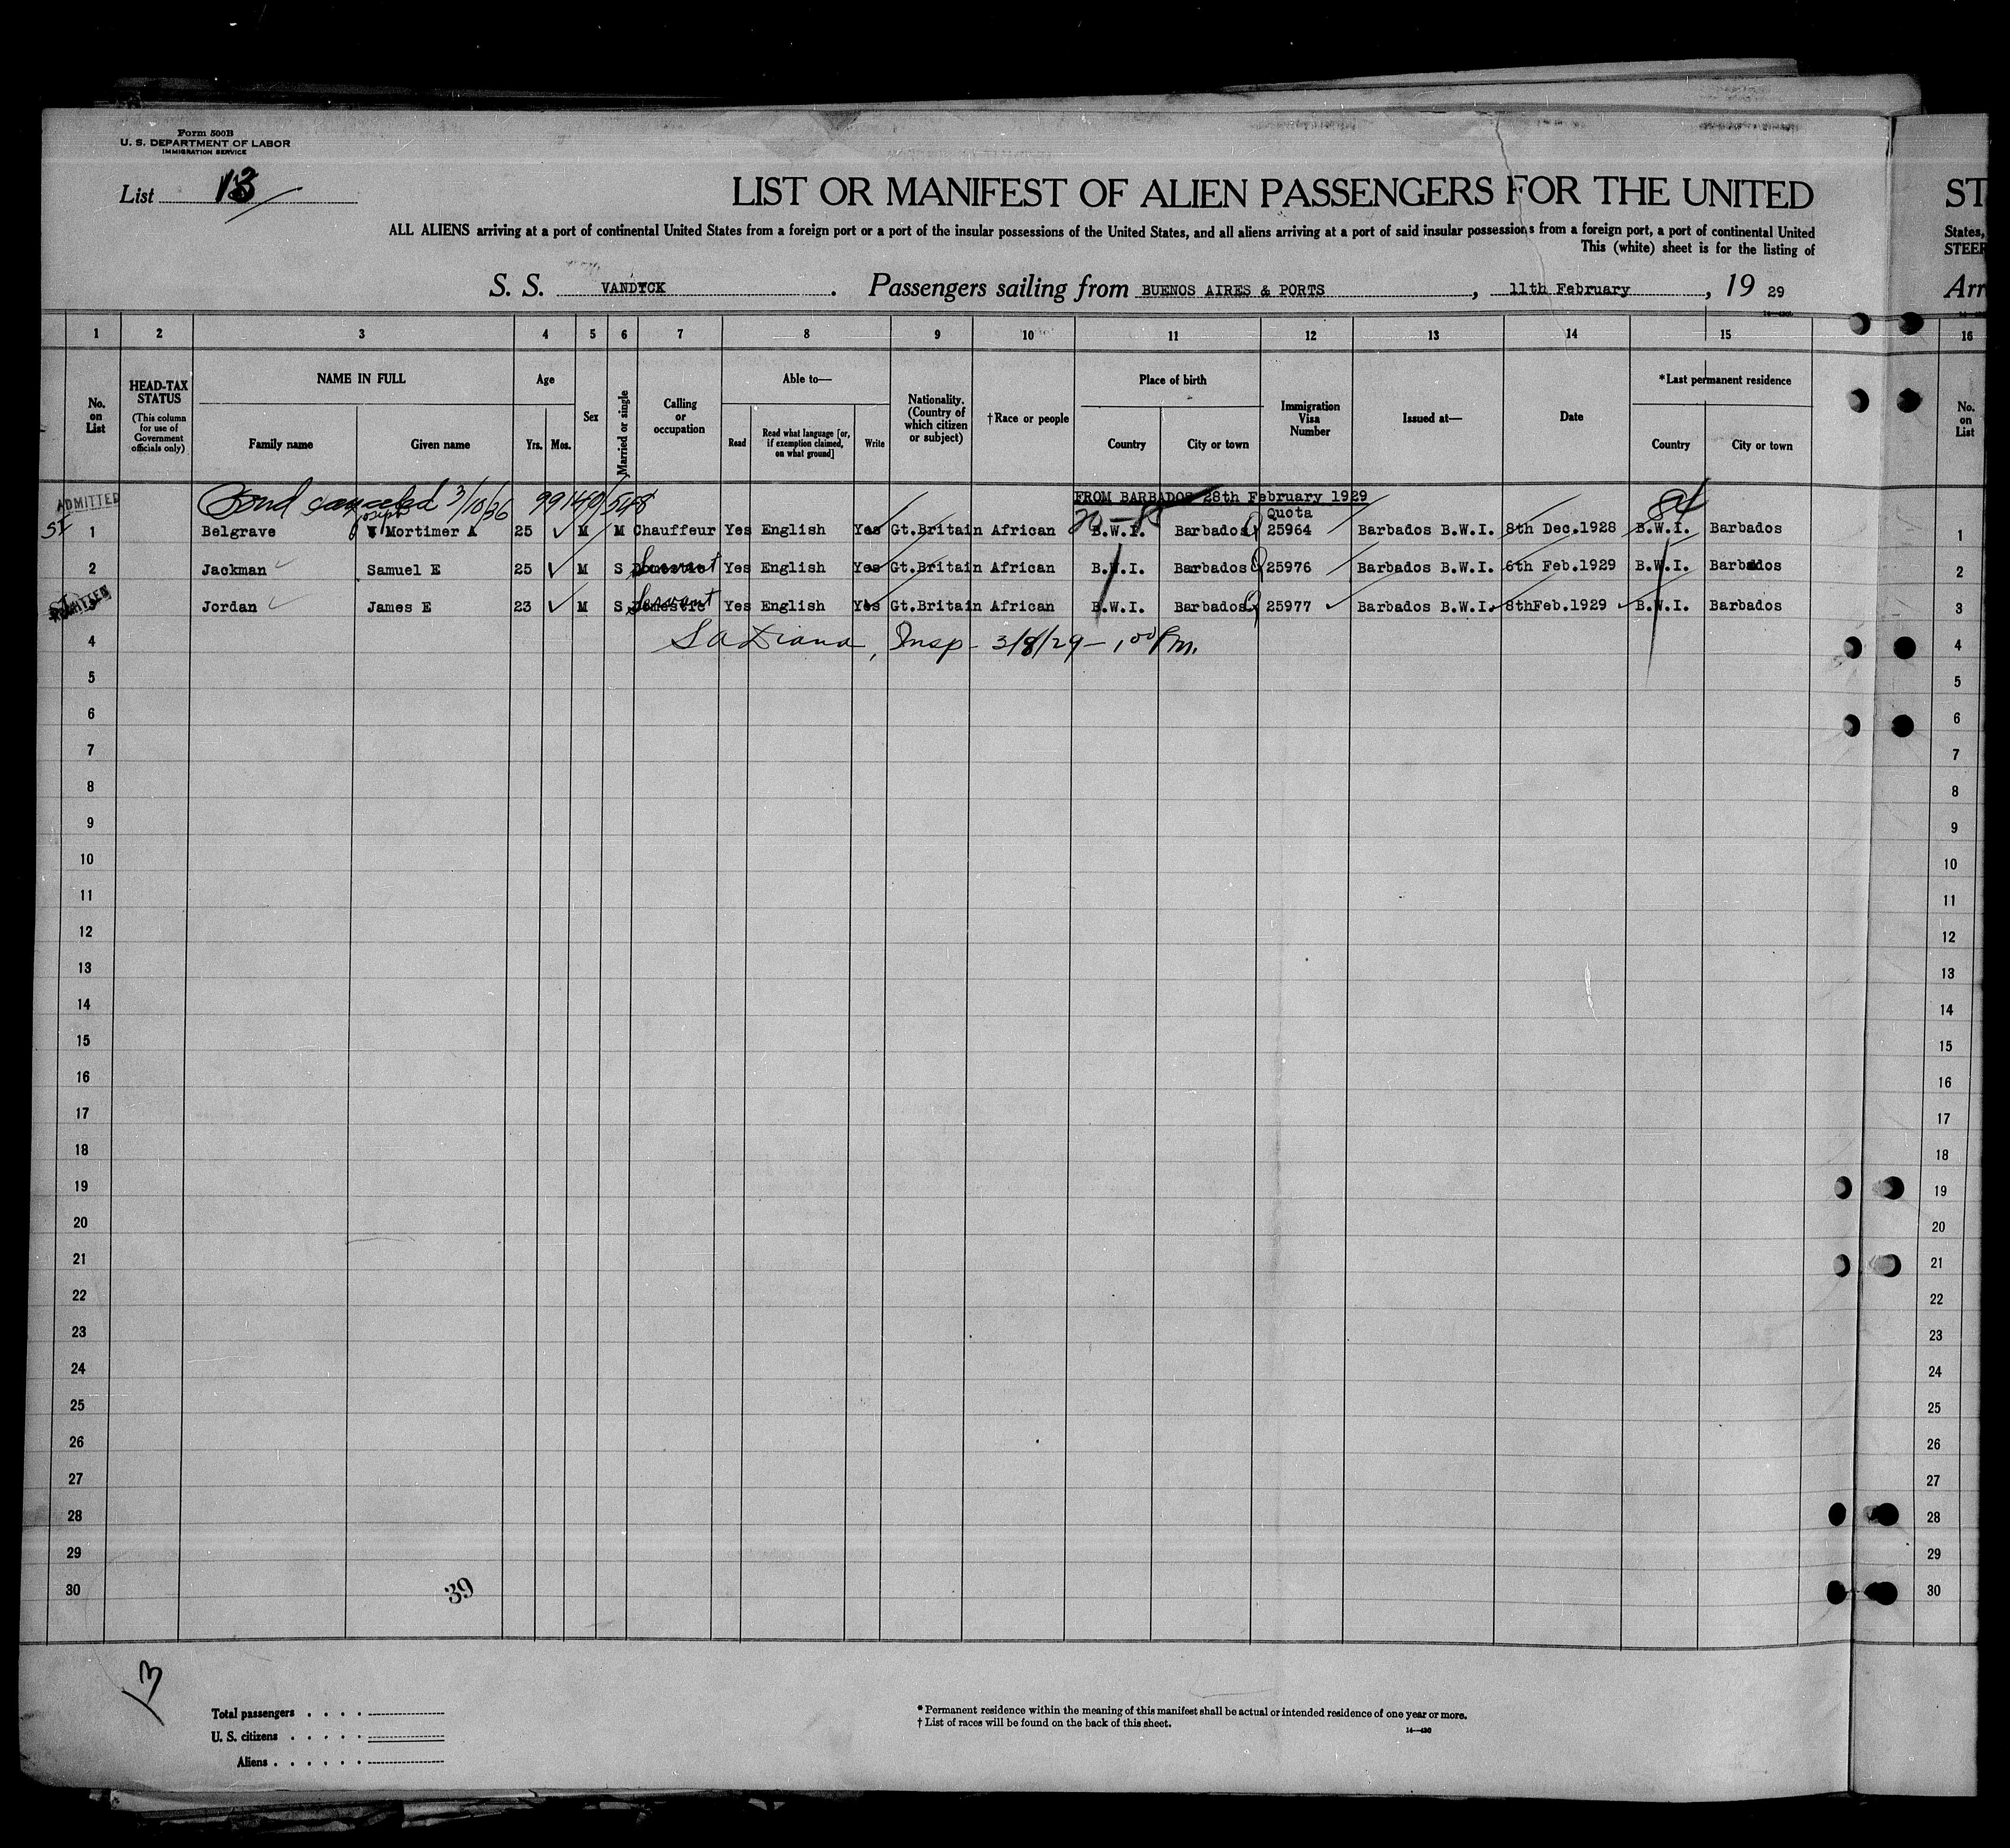 Form 500B
U. S. DEPARTMENT OF LABOR
IMMIGRATION SERVICE
List 13
LIST OR MANIFEST OF ALIEN PASSENGERS FOR THE UNITED
ST
ALL ALIENS arriving at a port of continental United States from a foreign port or a port of the insular possessions of the United States, and all aliens arriving at a port of said insular possessions from a foreign port, a port of continental United
States,
This (white) sheet is for the listing of
STEER
S. S. VANDYCK. Passengers sailing from BUENOS AIRES & PORTS, 11th February, 19 29
Arr
1 2 3 4 5 6 7 8 9 10 11 12 13 14 15 16
No. on List
HEAD-TAX STATUS (This column for use of Government officials only)
NAME IN FULL
Family name Given name
Age
Yrs. Mos.
Sex
Married or single
Calling or occupation
Able to—
Read Read what language [or, if exemption claimed, on what ground] Write
Nationality. (Country of which citizen or subject)
†Race or people
Place of birth
Country City or town
Immigration Visa Number
Issued at—
Date
*Last permanent residence
Country City or town
No. on List
ADMITTED Bond canceled 3/10/36 99140/598 FROM BARBADOS 28th February 1929
Quota
SI 1 Belgrave Joseph Mortimer A 25 M M Chauffeur Yes English Yes Gt.Britain African B.W.I. Barbados 25964 Barbados B.W.I. 8th Dec.1928 B.W.I. Barbados 1
2 Jackman Samuel E 25 M S Servant Yes English Yes Gt.Britain African B.W.I. Barbados 25976 Barbados B.W.I. 6th Feb.1929 B.W.I. Barbados 2
ADMITTED Jordan James E 23 M S Servant Yes English Yes Gt.Britain African B.W.I. Barbados 25977 Barbados B.W.I. 8thFeb.1929 B.W.I. Barbados 3
4 Insp - 3/8/29 - 1 00 Pm. 4
5 5
6 6
7 7
8 8
9 9
10 10
11 11
12 12
13 13
14 14
15 15
16 16
17 17
18 18
19 19
20 20
21 21
22 22
23 23
24 24
25 25
26 26
27 27
28 28
29 29
30 30
39
13
Total passengers . . . .
U. S. citizens . . . . .
Aliens . . . . . .
* Permanent residence within the meaning of this manifest shall be actual or intended residence of one year or more.
† List of races will be found on the back of this sheet.
14—430